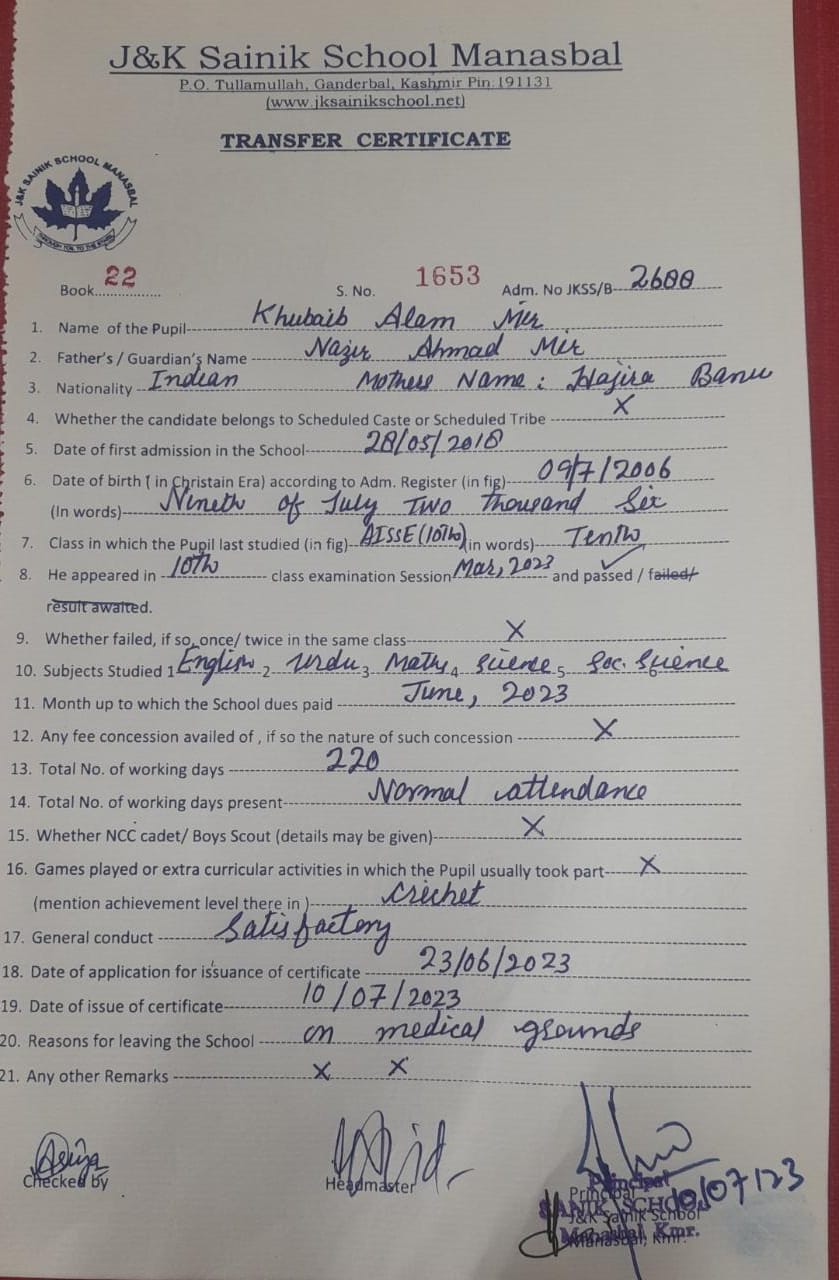 J&K Sainik School Manasbal
P.O. Tullamullah, Ganderbal, Kashmir Pin:191131
(www.jksainikschool.net)
TRANSFER CERTIFICATE
J&K SAINIK SCHOOL MANASBAL
Book 22 S. No. 1653 Adm. No JKSS/B- 2600
1. Name of the Pupil Khubaib Alam Mir
2. Father's / Guardian's Name Nazir Ahmad Mir
3. Nationality Indian Mothers Name : Hajira Banu
4. Whether the candidate belongs to Scheduled Caste or Scheduled Tribe X
5. Date of first admission in the School 28/05/2018
6. Date of birth ( in Christain Era) according to Adm. Register (in fig) 09/7/2006
(In words) Nineth of July Two Thousand Six
7. Class in which the Pupil last studied (in fig) AISSE (10th) (in words) Tenth
8. He appeared in 10th class examination Session Mar, 2023 and passed / failed/
result awaited.
9. Whether failed, if so, once/ twice in the same class X
10. Subjects Studied 1 English 2 Urdu 3 Maths 4 Science 5 Soc. Science
11. Month up to which the School dues paid June, 2023
12. Any fee concession availed of , if so the nature of such concession X
13. Total No. of working days 220
14. Total No. of working days present Normal attendance
15. Whether NCC cadet/ Boys Scout (details may be given) X
16. Games played or extra curricular activities in which the Pupil usually took part X
(mention achievement level there in ) Cricket
17. General conduct Satisfactory
18. Date of application for issuance of certificate 23/06/2023
19. Date of issue of certificate 10/07/2023
20. Reasons for leaving the School on medical grounds
21. Any other Remarks X X
Checked by Headmaster Principal 10/07/23
Principal
SAINIK SCHOOL
J&K Sainik School
Manasbal, Kmr.
Manasbal, Kmr.